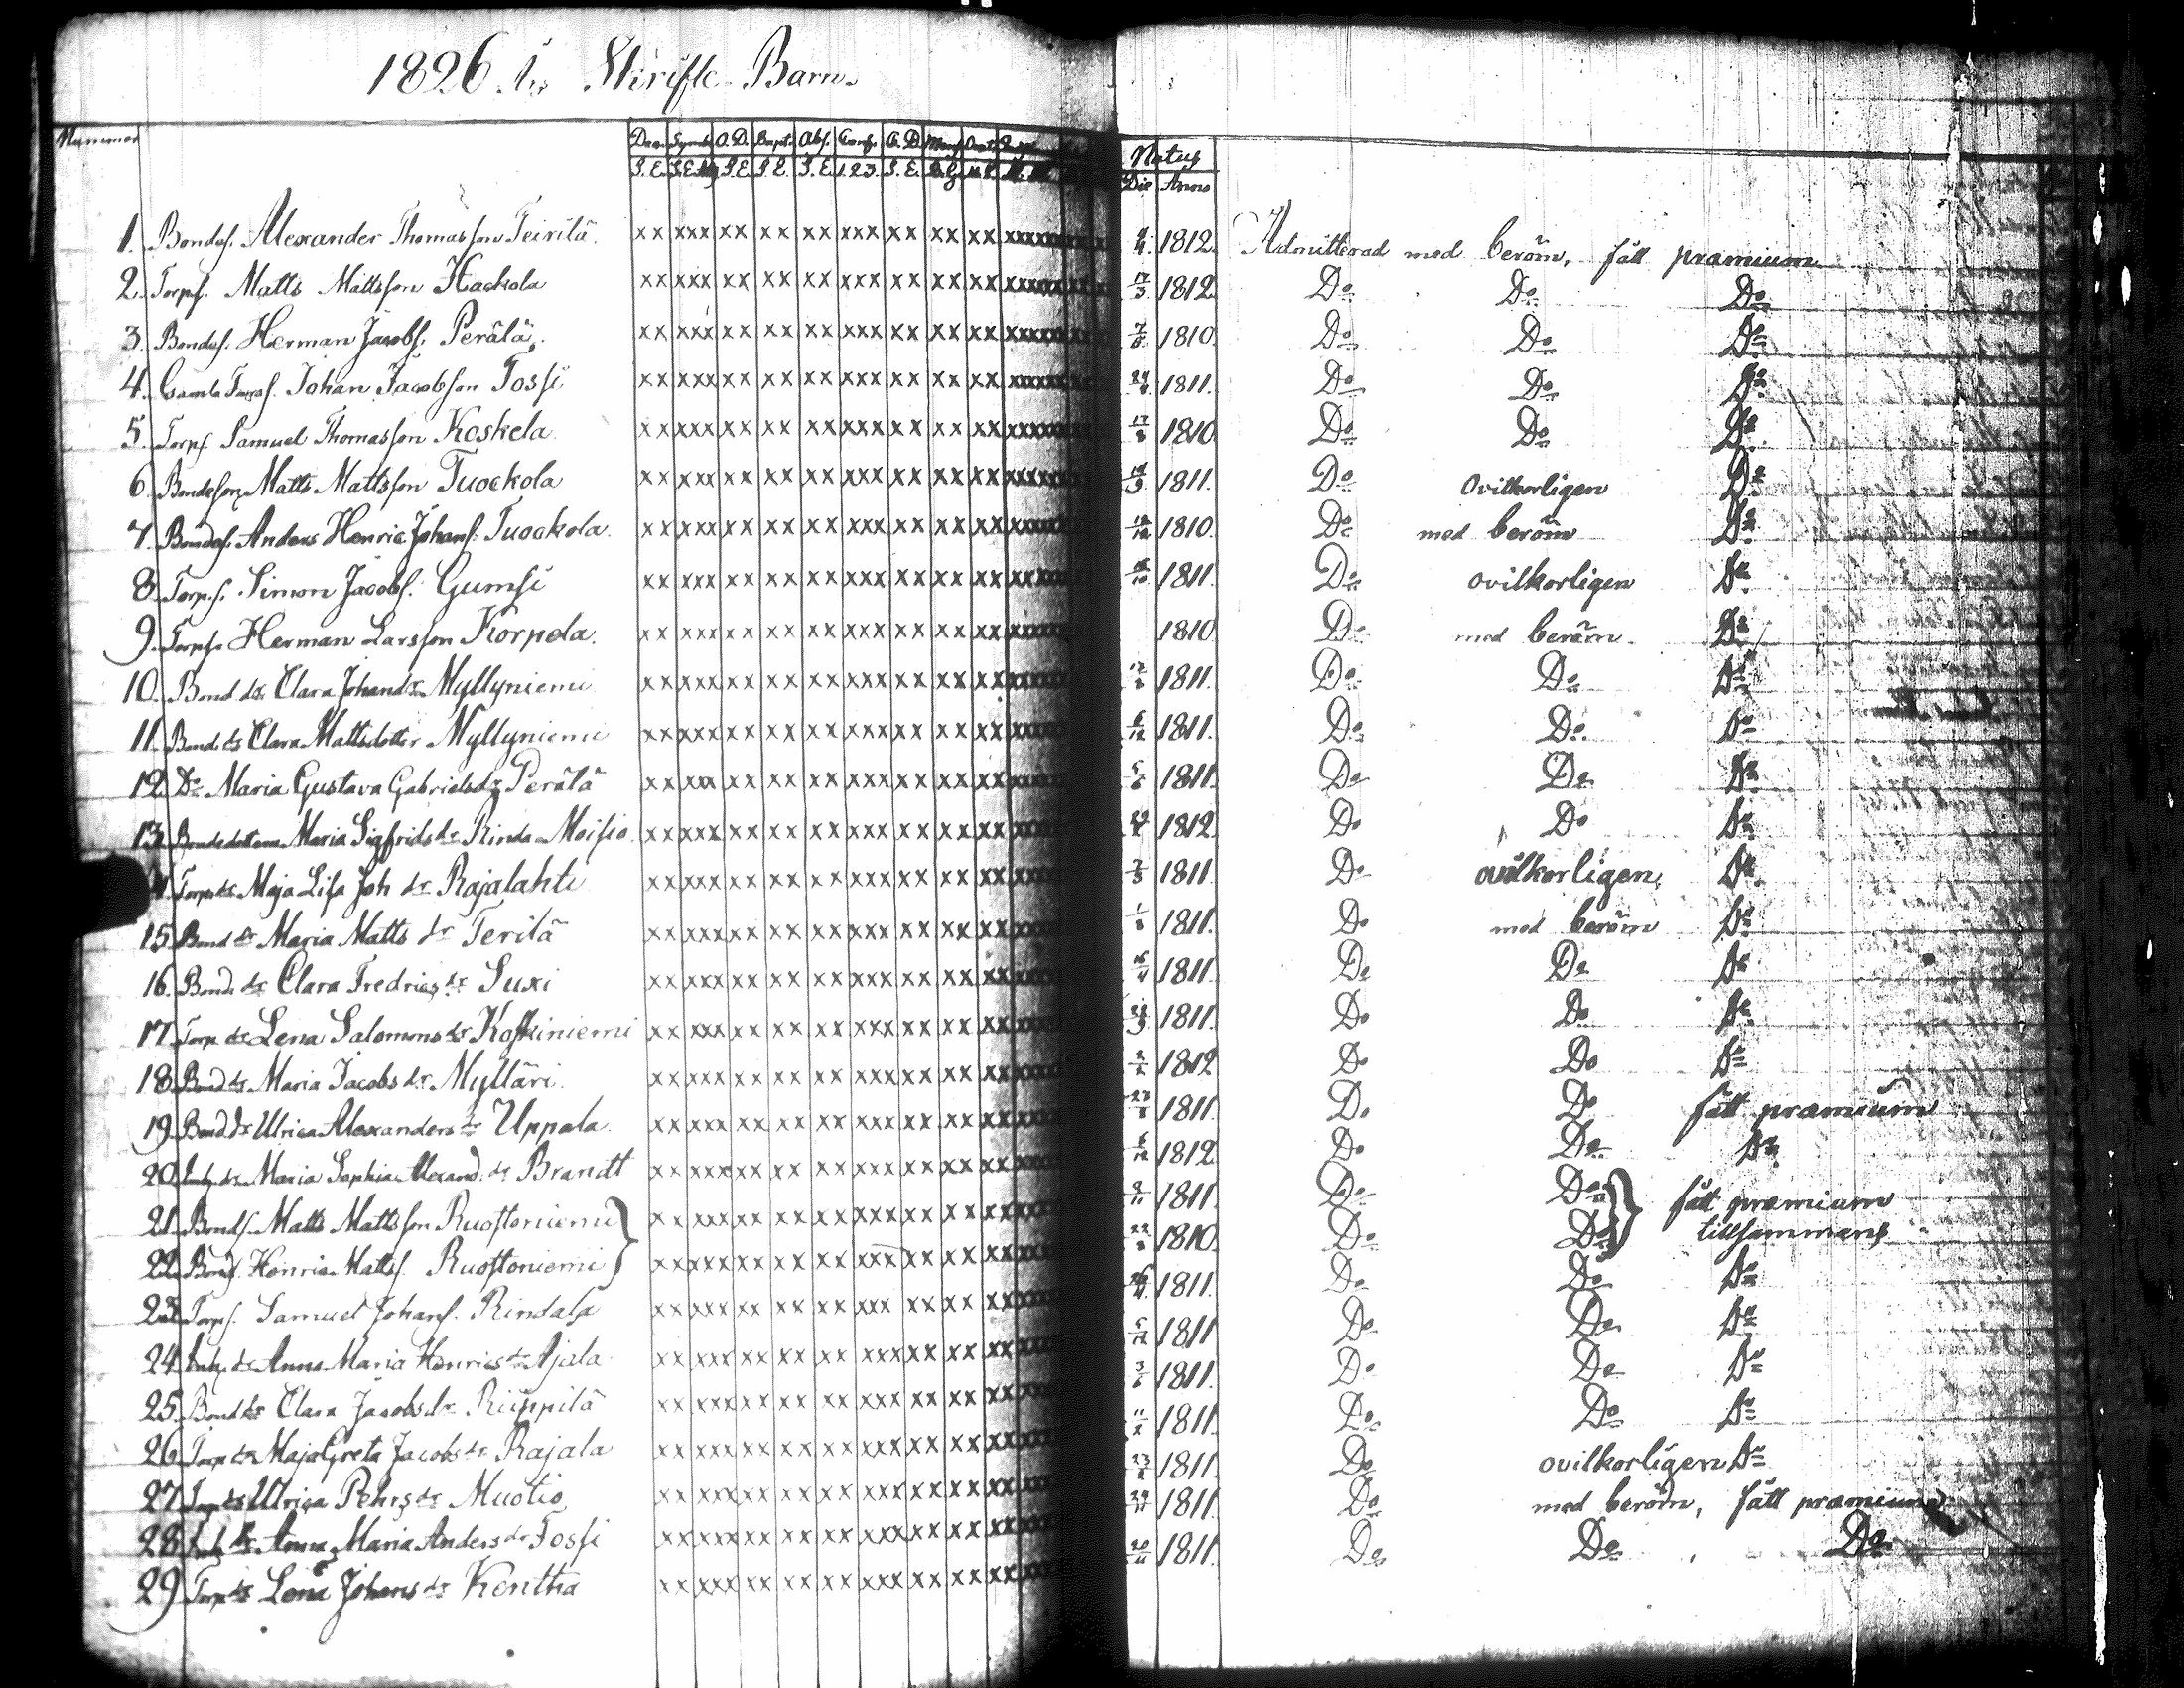 1826 års Skrifte-Barn
Nummer Dec. Symb. O.D. Bapt. Abs. Conf. C.D.
Natus
Die Anno
1. Bondes. Alexander Thomasson Teirilä. xx xxx xx xx xx xxx xx xx xx 1812. Admitterad med beröm, fått præmium
2. Torps. Matts Mattsson Hackola xx xxx xx xx xx xxx xx xx xx 17/3 1812. Do Do Do
3. Bondes. Herman Jacobs. Perälä. xx xxx xx xx xx xxx xx xx xx 1810. Do Do Do
4. Johan Jacobsson Tossi xx xxx xx xx xx xxx xx xx xx 1811. Do Do Do
5. Torps Samuel Thomasson Koskela xx xxx xx xx xx xxx xx xx xx 17/8 1810 Do Do Do
6. Bondeson Matts Mattsson Tuockola xx xxx xx xx xx xxx xx xx xx 1811. Do Ovilkorligen Do
7. Bondes. Anders Henric Johans. Tuockola. xx xxx xx xx xx xxx xx xx xx 1810. Do med beröm Do
8. Torp.s. Simon Jacobs. Gumsi xx xxx xx xx xx xxx xx xx xx 1811. Do ovilkorligen Do
9. Torps. Herman Larsson Korpela. xx xxx xx xx xx xxx xx xx xx 1810 Do med beröm. Do
10. Bond dr. Clara Johandr. Myllyniemi xx xxx xx xx xx xxx xx xx xx 1811. Do Do Do
11. Bond. dr Clara Mattsdotter Myllyniemi xx xxx xx xx xx xxx xx xx xx 6/12 1811. Do Do. Do
12. Do Maria Gustava Gabrielsdr Perälä xx xxx xx xx xx xxx xx xx xx 5/6 1811. Do Do Do
13. Maria Sigfrids dr Rinda Moisio. xx xxx xx xx xx xxx xx xx xx 1812. Do Do Do
Torp dr Maja Lisa Joh dr Rajalahti xx xxx xx xx xx xxx xx xx xx 1811 Do ovilkorligen, Do.
15. Bond dr Maria Matts dr Terilä xx xxx xx xx xx xxx xx xx xx 1/8 1811. Do med beröm Do
16. Bond. dr Clara Fredrics dr Suxi xx xxx xx xx xx xxx xx xx xx 1811. Do Do Do
17. Torp. dr Lena Salomons dr Koskiniemi xx xxx xx xx xx xxx xx xx xx 1811. Do Do Do
18. Bond dr Maria Jacobs dr Mylläri. xx xxx xx xx xx xxx xx xx xx 1812 Do Do Do
19. Bond dr Ulrica Alexanders dr Uppala. xx xxx xx xx xx xxx xx xx xx 1811. Do Do fått præmium
20. Maria Sophia Alexand. dr Brandt xx xxx xx xx xx xxx xx xx xx 1812 Do Do Do
21. Bonds. Matts Mattsson Ruostoniemi xx xxx xx xx xx xxx xx xx xx 1811. Do Do fått præmium
22. Bonds. Henric Matts. Ruostoniemi xx xxx xx xx xx xxx xx xx xx 1810. Do Do tillsammans
23. Torps. Samuel Johans. Rindala xx xxx xx xx xx xxx xx xx xx 1811. Do Do Do
24. Anna Maria Henrics dr Ajala xx xxx xx xx xx xxx xx xx xx 5/12 1811 Do Do Do
25. Bond dr Clara Jacobs dr xx xxx xx xx xx xxx xx xx xx 3/6 1811. Do Do Do
26. Torp dr Maja Greta Jacobs dr Rajala xx xxx xx xx xx xxx xx xx xx 1811. Do Do Do
27. Ulrica Pehrs dr Muotio xx xxx xx xx xx xxx xx xx xx 1811. Do ovilkorligen Do
28. Anna Maria Anders dr Tossi xx xxx xx xx xx xxx xx xx xx 1811. Do med beröm, fått præmium
29. Torp dr Lena Johans dr Kenttta xx xxx xx xx xx xxx xx xx xx 20/11 1811. Do Do Do